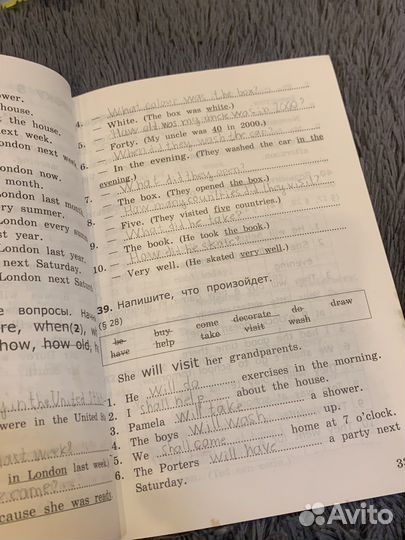 ower.
house.
t the house.
ow.
next week.
London next week
London now.
month.
London last month
every summer.
London every summ
last year.
London last year.
next Saturday.
London next Satur
е вопросы. Нач
ere, when(2), w
how, how old, h
y in the United Sta
were in the United S
last week?
in London last week)
e come?
cause she was ready
What colour was the box?
4. — White. (The box was white.)
How old was my uncle was in 2000?
5. — Forty. (My uncle was 40 in 2000.)
When did they wash the car?
6. — In the evening. (They washed the car in the
evening.)
What did they open?
7. — The box. (They opened the box.)
How many countries did they visit?
8. — Five. (They visited five countries.)
What did he take?
9. — The book. (He took the book.)
How did he skate?
10. — Very well. (He skated very well.)
39. Напишите, что произойдет.
(§ 28)
be buy come decorate do draw
have help take visit wash
She will visit her grandparents.
1. He will do exercises in the morning.
2. I shall help about the house.
3. Pamela will take a shower.
4. The boys will wash up.
5. We shall come home at 7 o'clock.
6. The Porters will have a party next
Saturday.
Avito